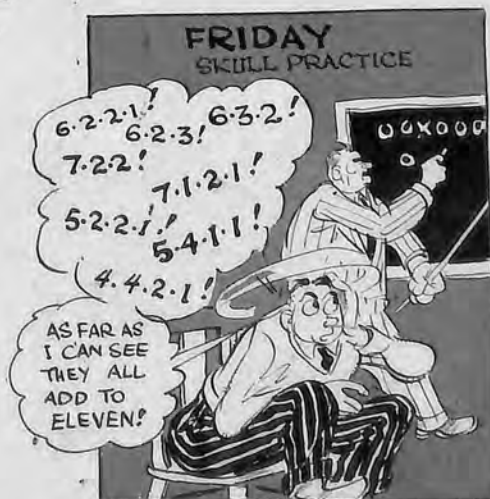 FRIDAY
SKULL PRACTICE
6·2·2·1!
6·2·3!
6·3·2!
7·2·2!
7·1·2·1!
5·2·2·1!
5·4·1·1!
4·4·2·1!
OOXOOO
O
AS FAR AS
I CAN SEE
THEY ALL
ADD TO
ELEVEN!